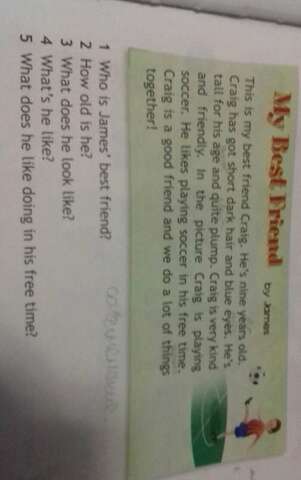 My Best Friend
by James
This is my best friend Craig. He's nine years old.
Craig has got short dark hair and blue eyes. He's
tall for his age and quite plump. Craig is very kind
and friendly. In the picture Craig is playing
soccer. He likes playing soccer in his free time.
Craig is a good friend and we do a lot of things
together!
1 Who is James' best friend?
2 How old is he?
3 What does he look like?
4 What's he like?
5 What does he like doing in his free time?